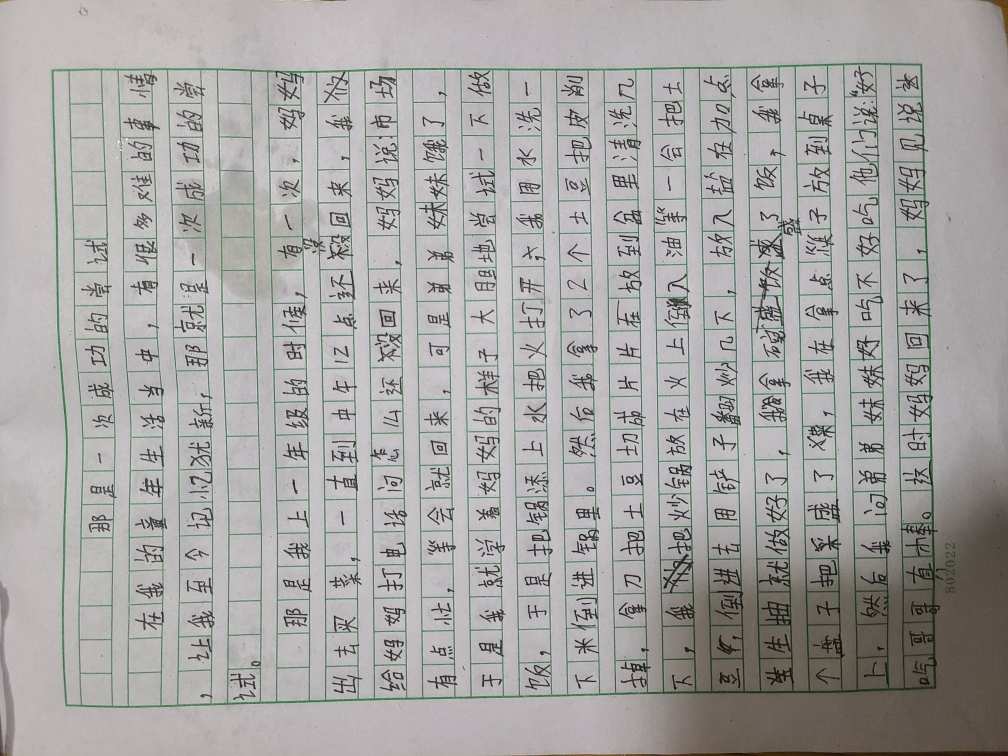 那是一次成功的尝试
在我的童年生活当中，有很多难的事情
，让我至今记忆犹新，那就是一次成功的尝
试。
那是我上一年级的时候，有一次，妈妈
出去买菜，一直到中午12点还没回来，我
给妈妈打电话问怎么还没回来，妈妈说：市场
有点忙，等会就回来，可是弟弟妹妹饿了，
于是我就学着妈妈的样子大胆地尝试一下做
饭，于是把锅添上水把火打开，我用水洗一
下米倒进锅里。然后我拿了2个土豆把皮削
掉，拿刀把土豆切成片片在放到盆里清洗几
下，我把炒锅放在火上倒入油等一会把土
豆倒进去用铲子翻炒几下，放入盐在加点
生抽就做好了，我拿碗盛了饭，我拿
个盘子把菜盛了菜，我在拿点筷子放到桌子
上，然后我问弟弟妹妹好吃不好吃他们说“好
吃哥哥真棒。这时妈妈回来了，妈妈见说这
802022